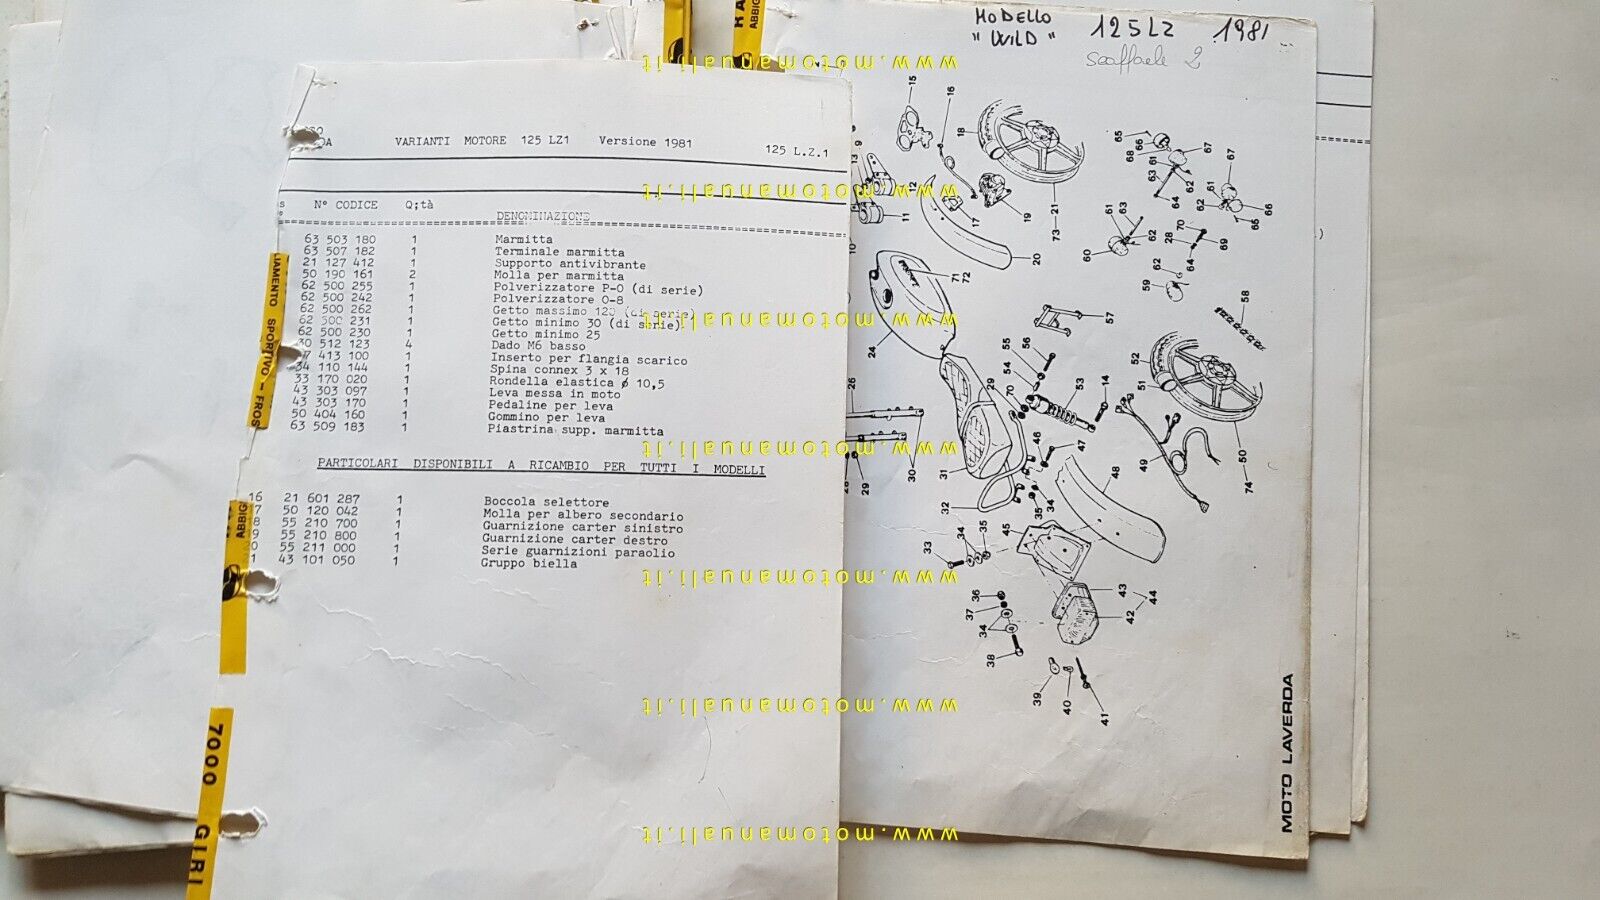 VARIANTI MOTORE 125 LZ1 Versione 1981 125 L.Z.1
N° CODICE Q;tà DENOMINAZIONE
63 503 180 1 Marmitta
63 507 182 1 Terminale marmitta
21 127 412 1 Supporto antivibrante
50 190 161 2 Molla per marmitta
62 500 255 1 Polverizzatore P-O (di serie)
62 500 242 1 Polverizzatore O-8
62 500 262 1 Getto massimo 120 (di serie)
62 500 231 1 Getto minimo 30 (di serie)
62 500 230 1 Getto minimo 25
30 512 123 4 Dado M6 basso
413 100 1 Inserto per flangia scarico
34 110 144 1 Spina connex 3 x 18
33 170 020 1 Rondella elastica ø 10,5
43 303 097 1 Leva messa in moto
43 303 170 1 Pedaline per leva
50 404 160 1 Gommino per leva
63 509 183 1 Piastrina supp. marmitta
PARTICOLARI DISPONIBILI A RICAMBIO PER TUTTI I MODELLI
16 21 601 287 1 Boccola selettore
7 50 120 042 1 Molla per albero secondario
8 55 210 700 1 Guarnizione carter sinistro
9 55 210 800 1 Guarnizione carter destro
0 55 211 000 1 Serie guarnizioni paraolio
1 43 101 050 1 Gruppo biella
LIAMENTO SPORTIVO - FROS
ABBIG
7000 GIRI
ABBIG
MODELLO
"WILD"
125LZ 1981
scaffale 2
15
16
18
9
13
12
11
10
17
19
21
73
20
71
72
24
26
29
30
31
32
57
55
56
54
70
53
14
46
47
34
35
33
34
35
45
48
49
36
37
34
38
43
44
42
39
40
41
65
66
68
61
67
63
62
64
67
61
62
66
65
61
63
62
60
70
28
69
64
62
59
58
52
51
50
74
MOTO LAVERDA
www.motomanuali.it
www.motomanuali.it
www.motomanuali.it
www.motomanuali.it
www.motomanuali.it
www.motomanuali.it
www.motomanuali.it